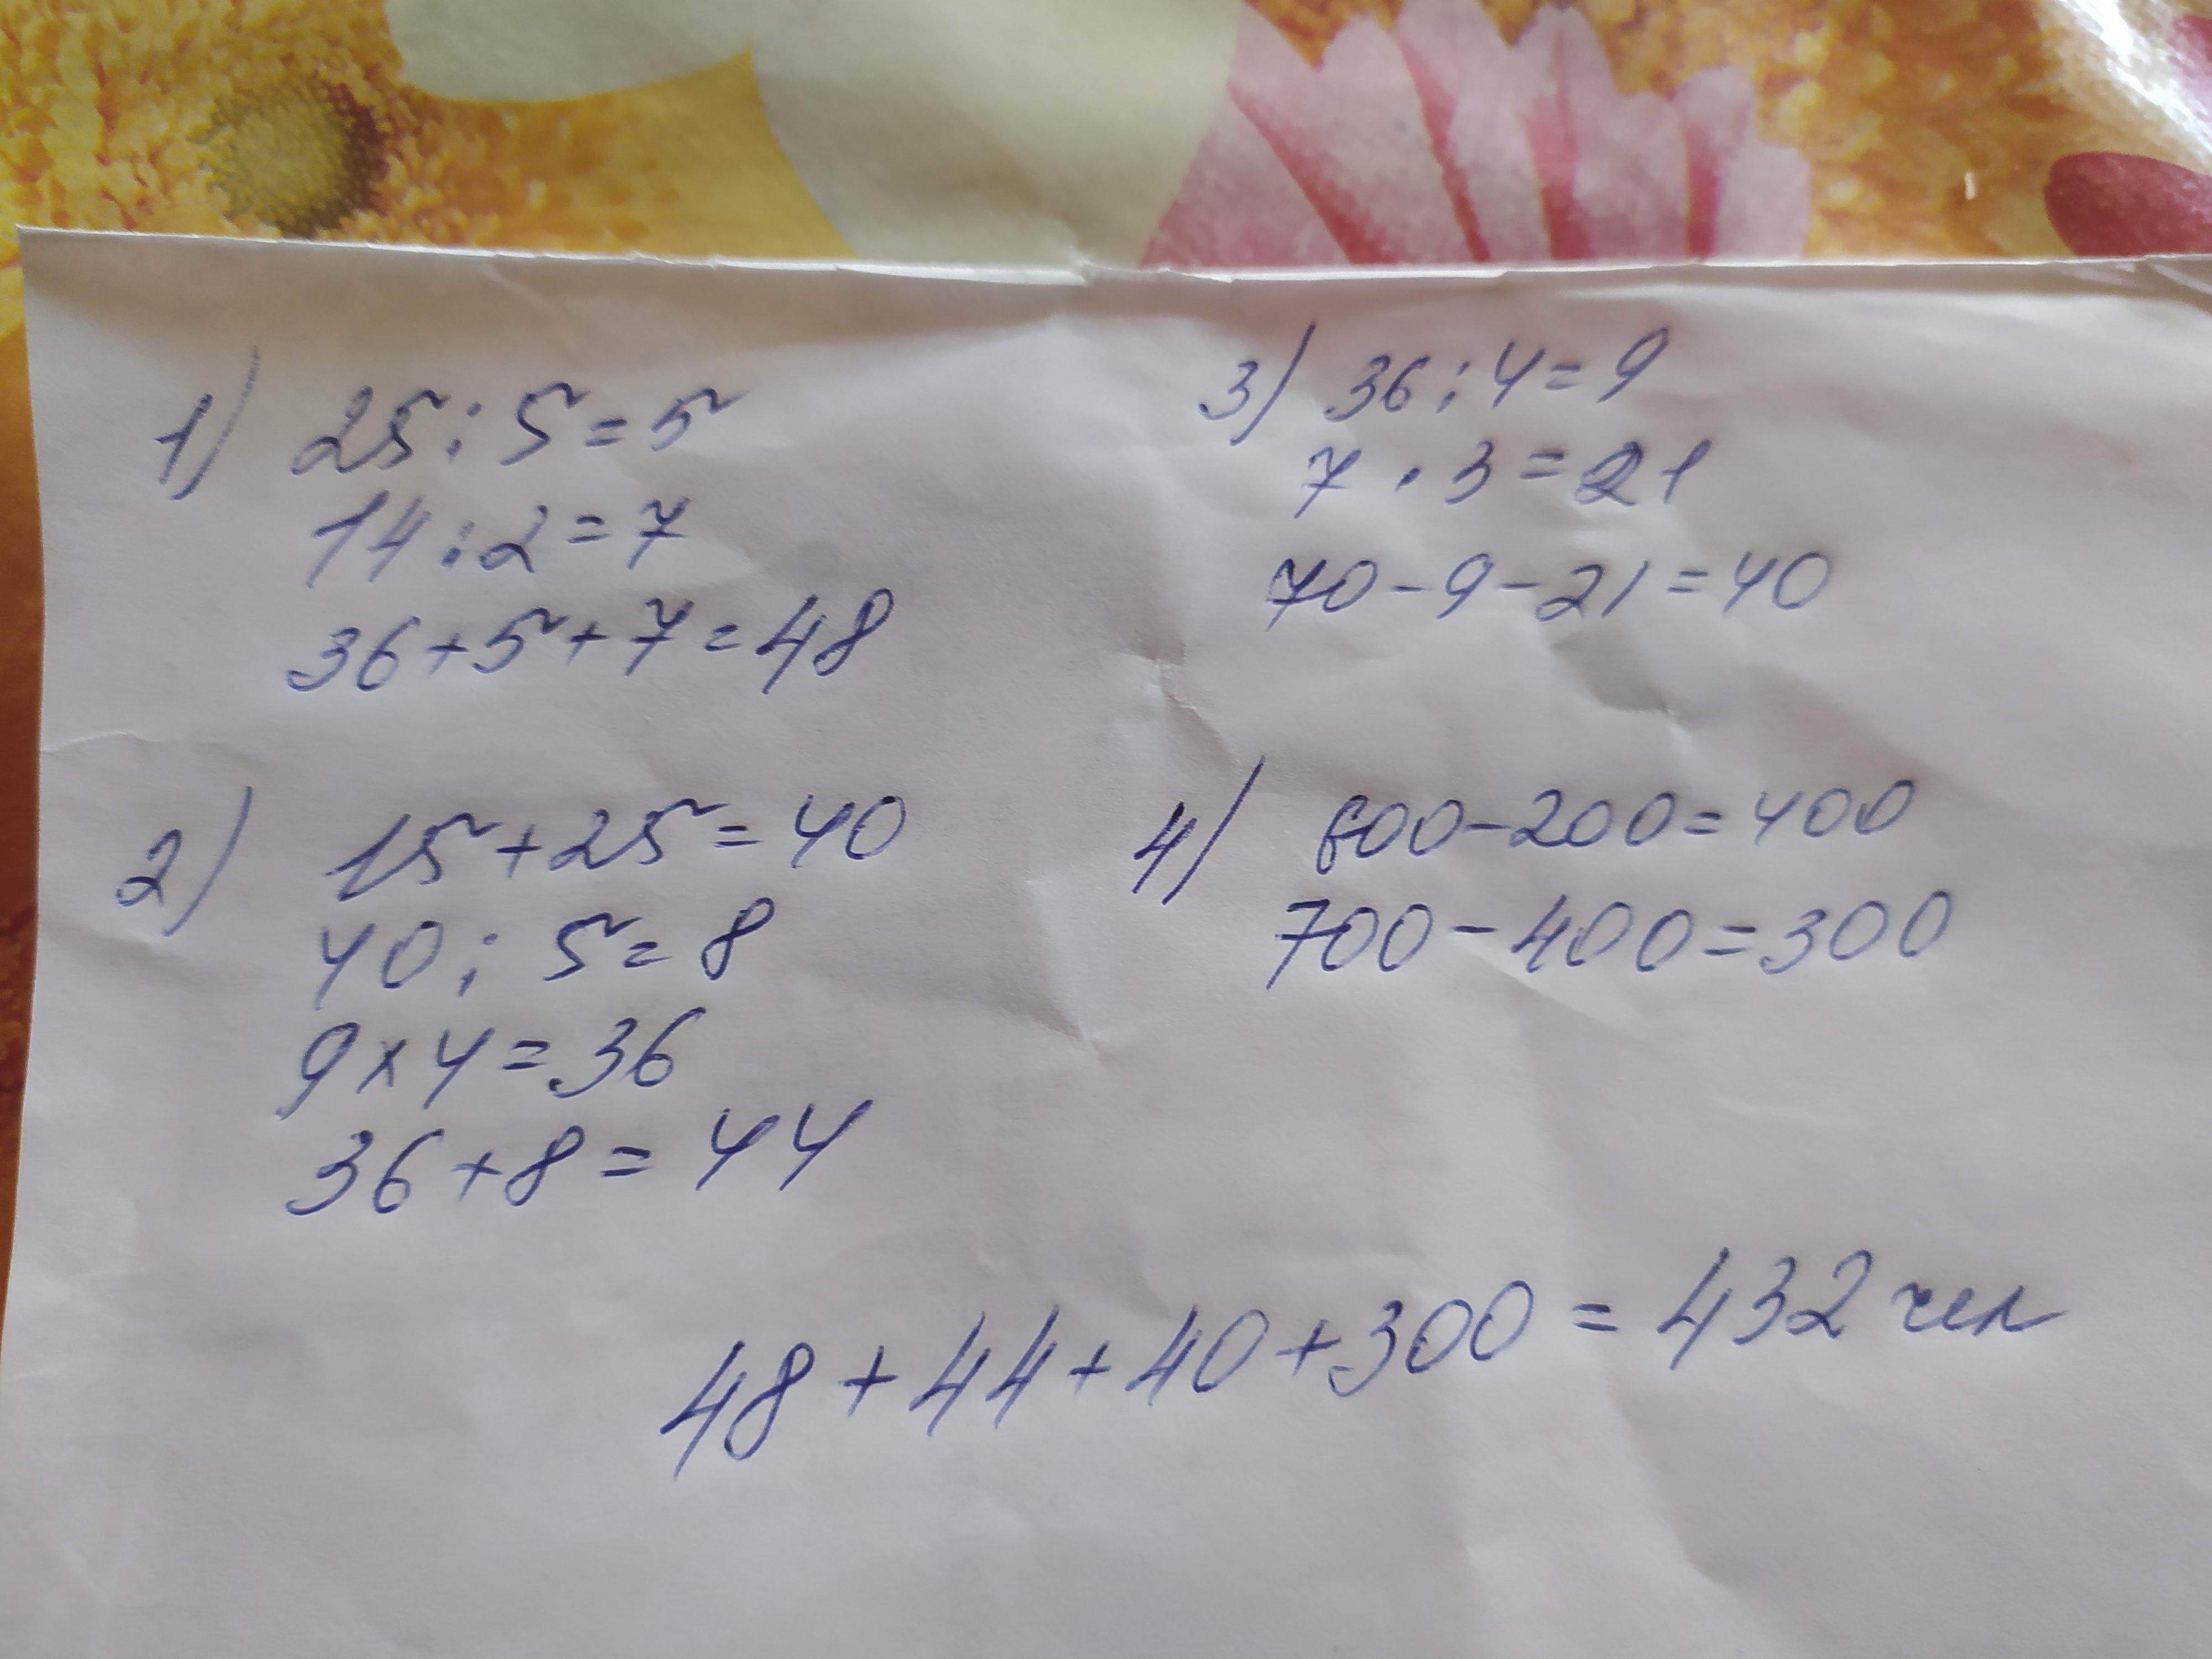 1) 25:5=5
14:2=7
36+5+7=48
2) 15+25=40
40:5=8
9×4=36
36+8=44
3) 36:4=9
7·3=21
70-9-21=40
4) 600-200=400
700-400=300
48+44+40+300=432 чел